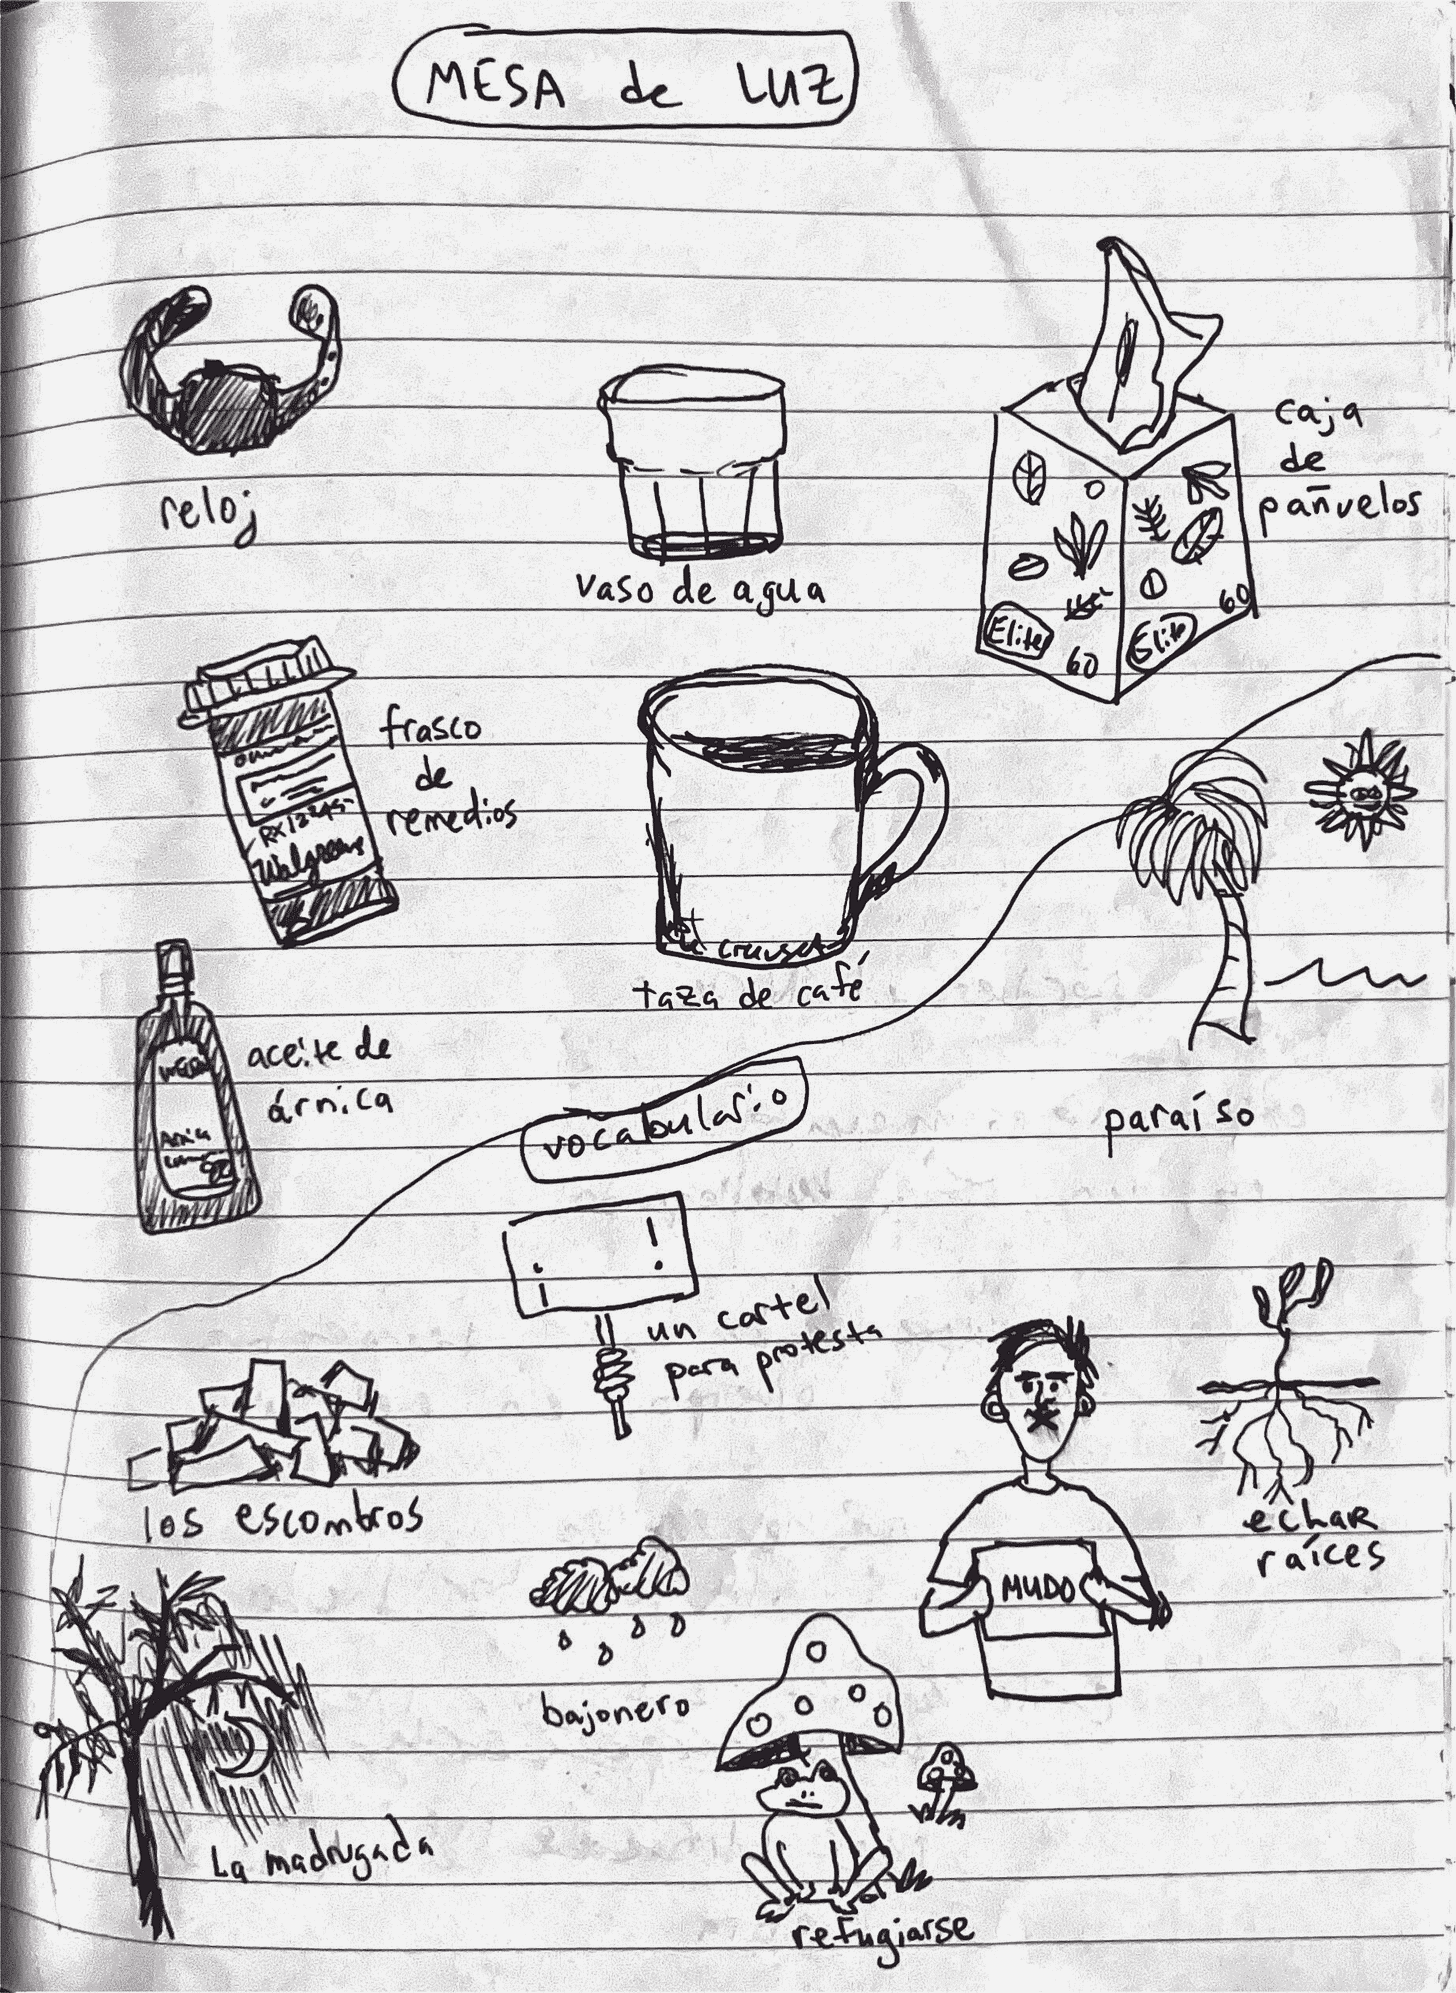 MESA de LUZ
reloj
vaso de agua
caja
de
pañuelos
Elite
60
Elite
60
frasco
de
remedios
Walgreens
taza de café
le creuset
aceite de
árnica
paraíso
vocabulario
¡ !
un cartel
para protesta
los escombros
MUDO
echar
raíces
bajonero
La madrugada
refugiarse